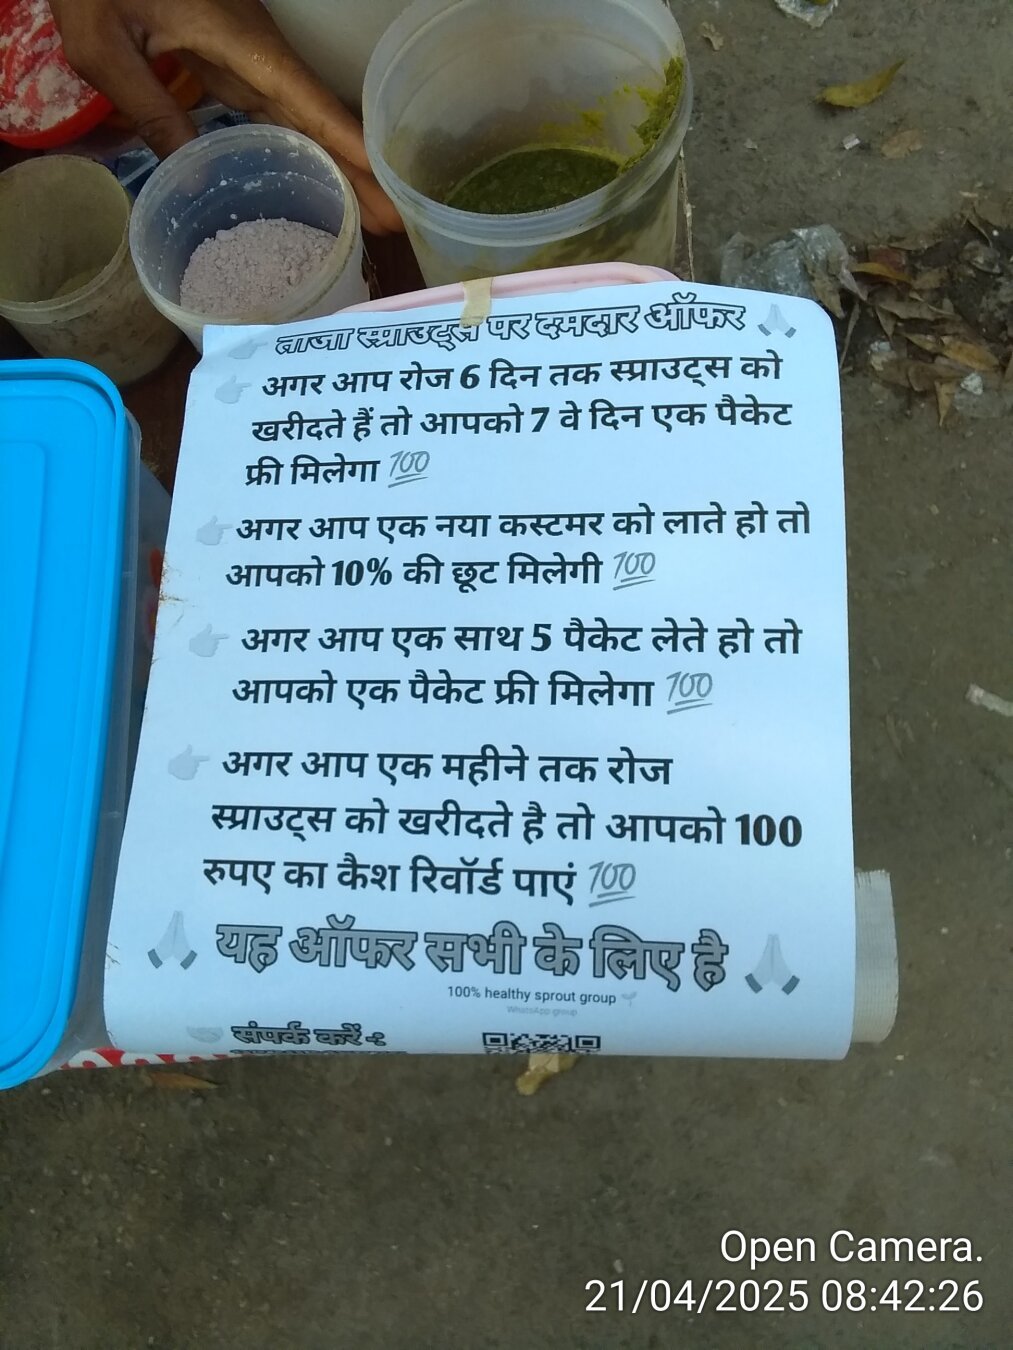 ताजा स्प्राउट्स पर दमदार ऑफर 🙏
👉 अगर आप रोज 6 दिन तक स्प्राउट्स को
खरीदते हैं तो आपको 7 वे दिन एक पैकेट
फ्री मिलेगा 💯
👉 अगर आप एक नया कस्टमर को लाते हो तो
आपको 10% की छूट मिलेगी 💯
👉 अगर आप एक साथ 5 पैकेट लेते हो तो
आपको एक पैकेट फ्री मिलेगा 💯
👉 अगर आप एक महीने तक रोज
स्प्राउट्स को खरीदते है तो आपको 100
रुपए का कैश रिवॉर्ड पाएं 💯
🙏 यह ऑफर सभी के लिए है 🙏
100% healthy sprout group 🌱
WhatsApp group
संपर्क करें -:
Open Camera.
21/04/2025 08:42:26